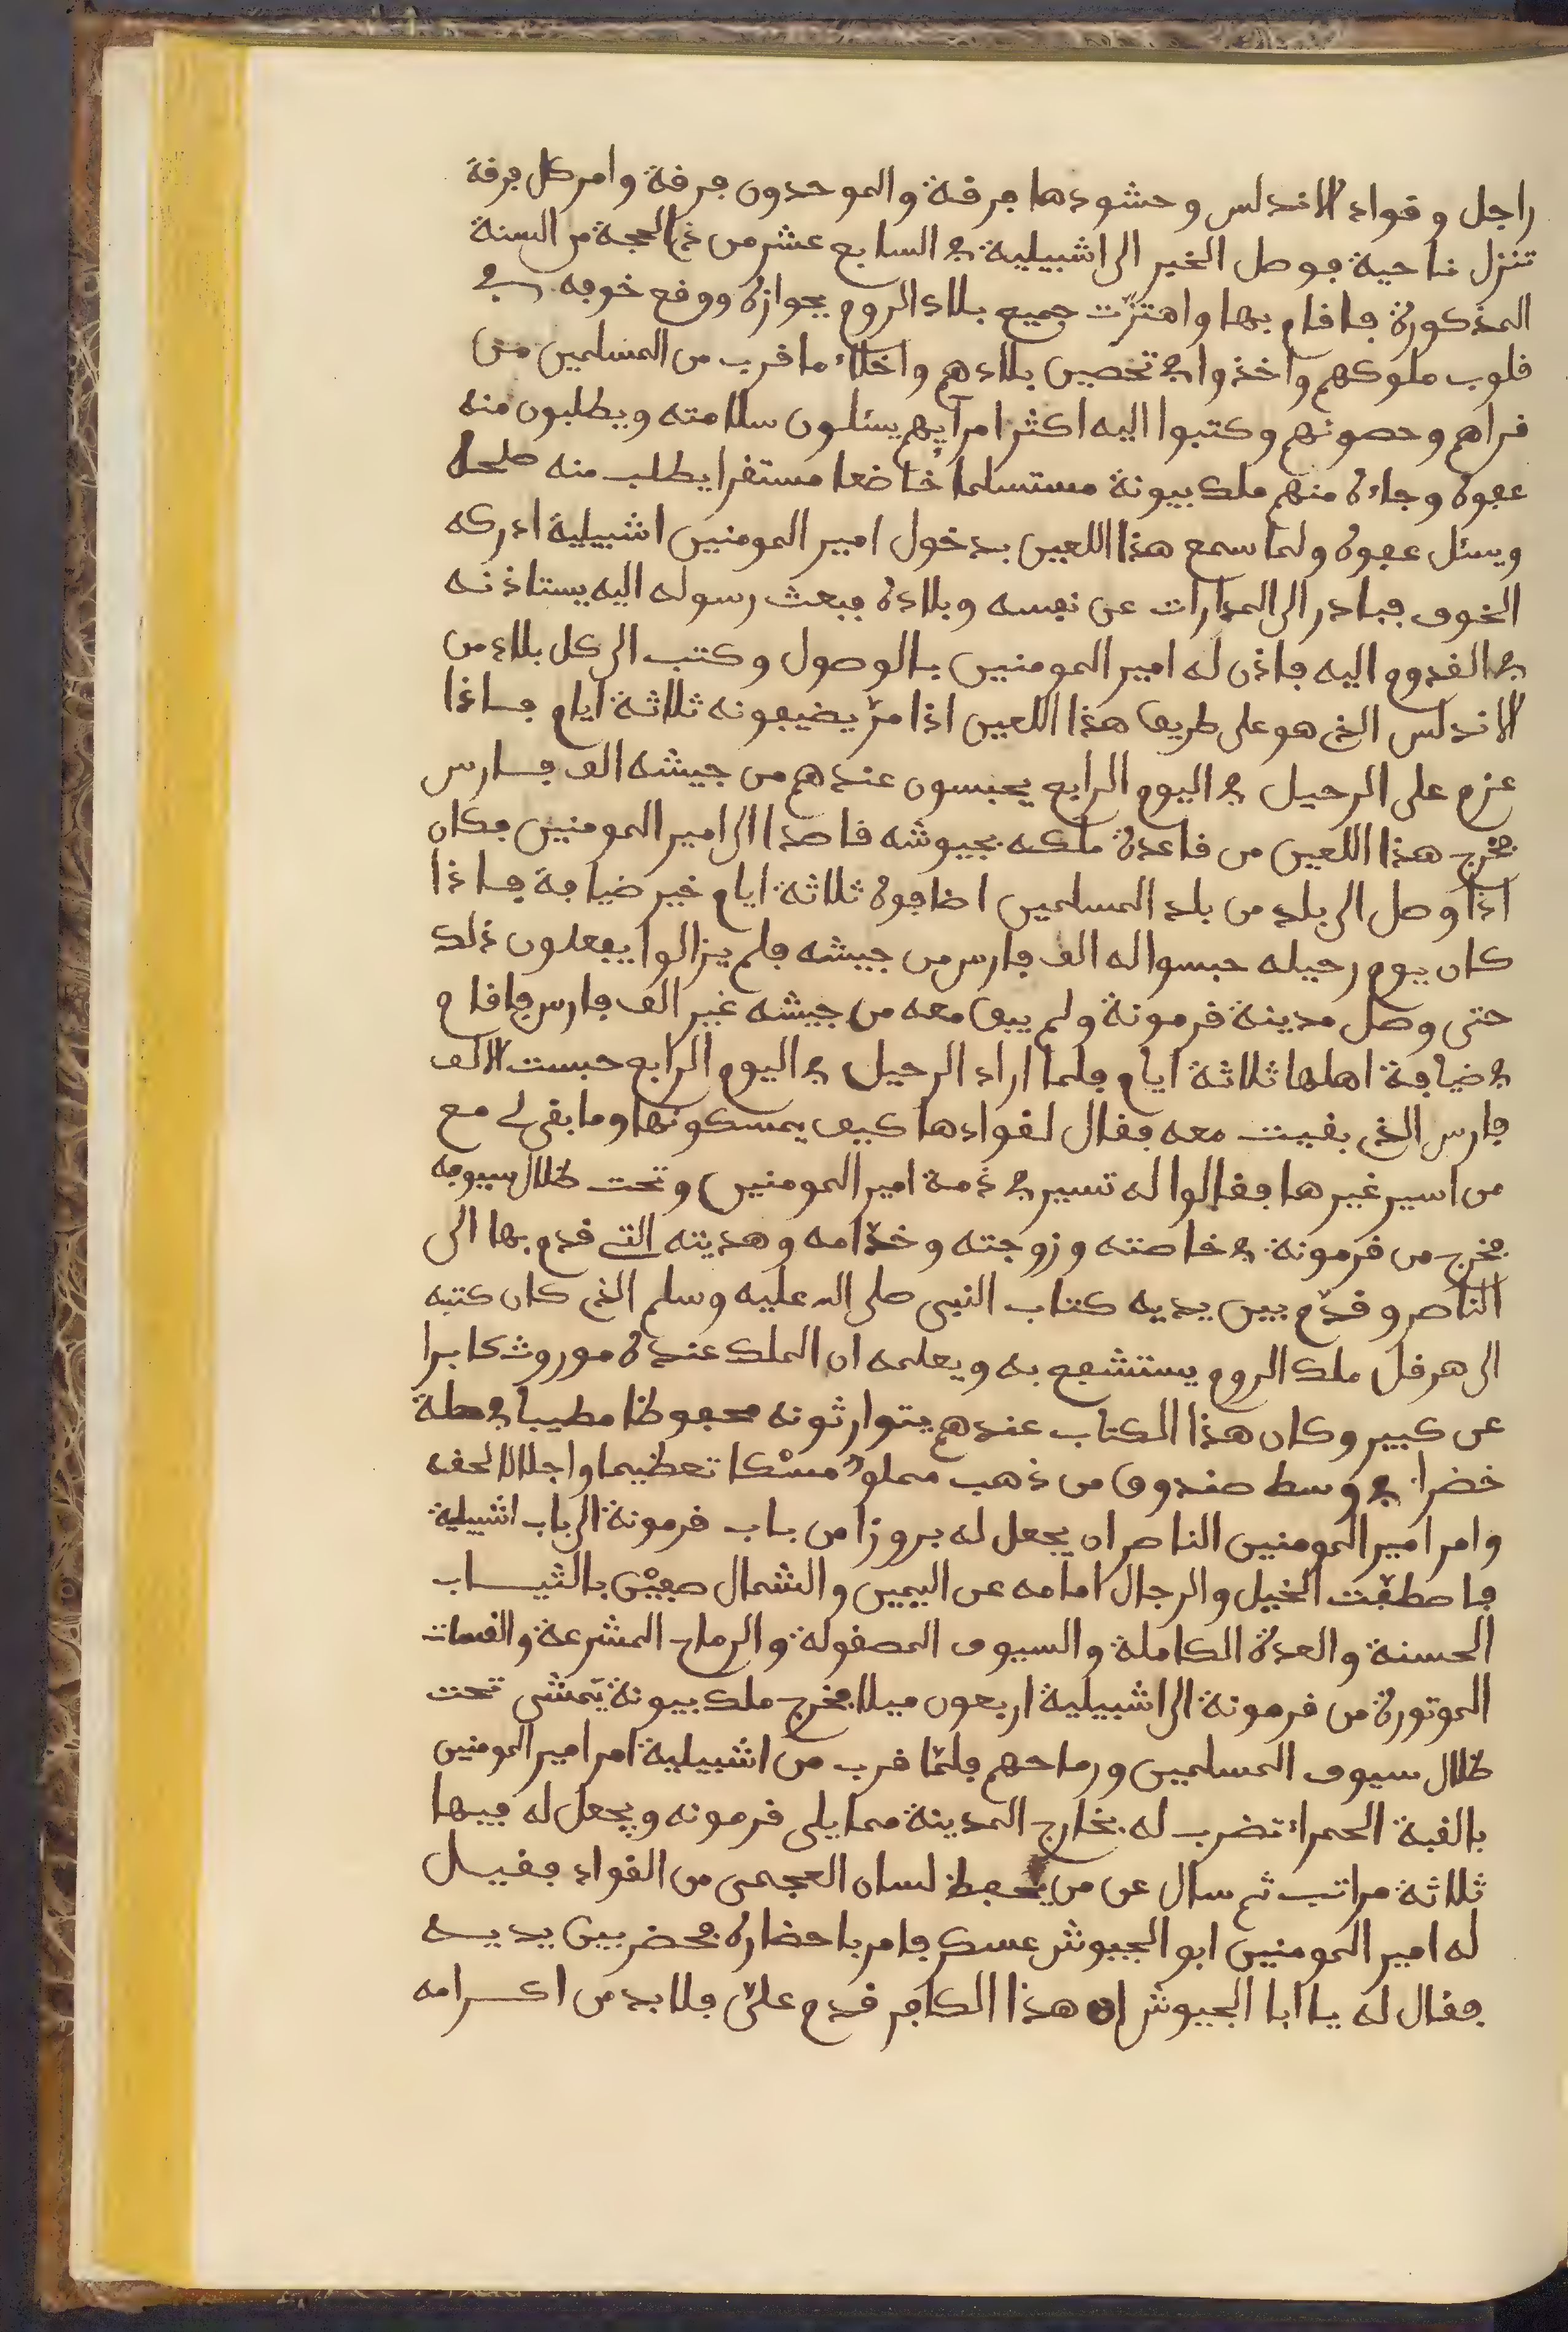 راجل وقواد الاندلس وحشودها فرقة والموحدون فرقة وامر كل فرقة
تنزل ناحية فوصل الخبر الى اشبيلية في السابع عشر من ذي الحجة من السنة
المذكورة فاقام بها واهتزّت جميع بلاد الروم بجوازه ووقع خوفه في
قلوب ملوكهم واخذوا في تحصين بلادهم واخلاء ما قرب من المسلمين من
قراهم وحصونهم وكتبوا اليه اكثر امرايهم يسئلون سلامته ويطلبون منه
عفوه وجاءه منهم ملك بيونة مستسلما خاضعا مستقرا يطلب منه صلحه
ويسئل عفوه ولما سمع هذا اللعين بدخول امير المومنين اشبيلية ادركه
الخوف فبادر الى المدارات عن نفسه وبلاده فبعث رسوله اليه يستاذنه
في القدوم اليه فاذن له امير المومنين بالوصول وكتب الى كل بلاد من
الاندلس الذي هو على طريق هذا اللعين اذا مرّ يضيفونه ثلاثة ايام فاذا
عزم على الرحيل في اليوم الرابع يحبسون عندهم من جيشه الف فارس
فخرج هذا اللعين من قاعدة ملكه بجيوشه قاصدا الى امير المومنين فكان
اذا وصل الى بلد من بلد المسلمين اضافوه ثلاثة ايام خير ضيافة فاذا
كان يوم رحيله حبسوا له الف فارس من جيشه فلم يزالوا يفعلون ذلك
حتى وصل مدينة قرمونة ولم يبق معه من جيشه غير الف فارس فاقام
في ضيافة اهلها ثلاثة ايام فلما اراد الرحيل في اليوم الرابع حبست الالف
فارس الذي بقيت معه فقال لقوادها كيف يمسكونها وما بقى لي مع
من اسير غيرها فقالوا له تسير في ذمة امير المومنين وتحت ظلال سيوفه
فخرج من قرمونة في خاصته وزوجته وخدّامه وهديته التي قدم بها الى
الناصر وقدّم بين يديه كتاب النبى صلى الله عليه وسلم الذي كان كتبه
الى هرقل ملك الروم يستشفع به ويعلمه ان الملك عنده موروث كابرا
عن كبير وكان هذا الكتاب عندهم يتوارثونه محفوظا مطيبا في حلة
خضراء في وسط صندوق من ذهب مملوءٌ مسْكا تعظيما واجلالا لحقه
وامر امير المومنين الناصر ان يجعل له بروزا من باب قرمونة الى باب اشبيلية
فاصطفّت الخيل والرجال امامه عن اليمين والشمال صفيْن بالثياب
الحسنة والعدة الكاملة والسيوف المصقولة والرماح المشرعة والقسات
الموتورة من قرمونة الى اشبيلية اربعون ميلا فخرج ملك بيونة يَمشى تحت
ظلال سيوف المسلمين ورماحهم فلمّا قرب من اشبيلية امر امير المومنين
بالقبة الحمراء تضرب له بخارج المدينة مما يلى قرمونه ويجعل له فيها
ثلاثة مراتب ثم سال عن من يحفظ لسان العجمى من القواد فقيل
له امير المومنين ابو الجيوش عسكر فامر باحضاره فحضر بين يديه
فقال له يا ابا الجيوش ان هذا الكافر قدم علىّ فلا بد من اكرامه